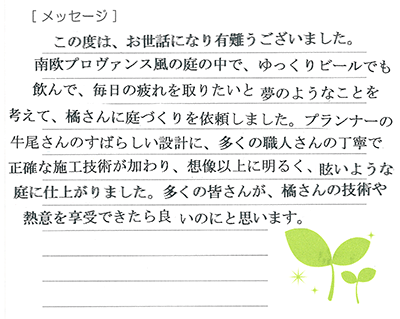 [ メッセージ ]
この度は、お世話になり有難うございました。
南欧プロヴァンス風の庭の中で、ゆっくりビールでも
飲んで、毎日の疲れを取りたいと夢のようなことを
考えて、橘さんに庭づくりを依頼しました。プランナーの
牛尾さんのすばらしい設計に、多くの職人さんの丁寧で
正確な施工技術が加わり、想像以上に明るく、眩いような
庭に仕上がりました。多くの皆さんが、橘さんの技術や
熱意を享受できたら良いのにと思います。